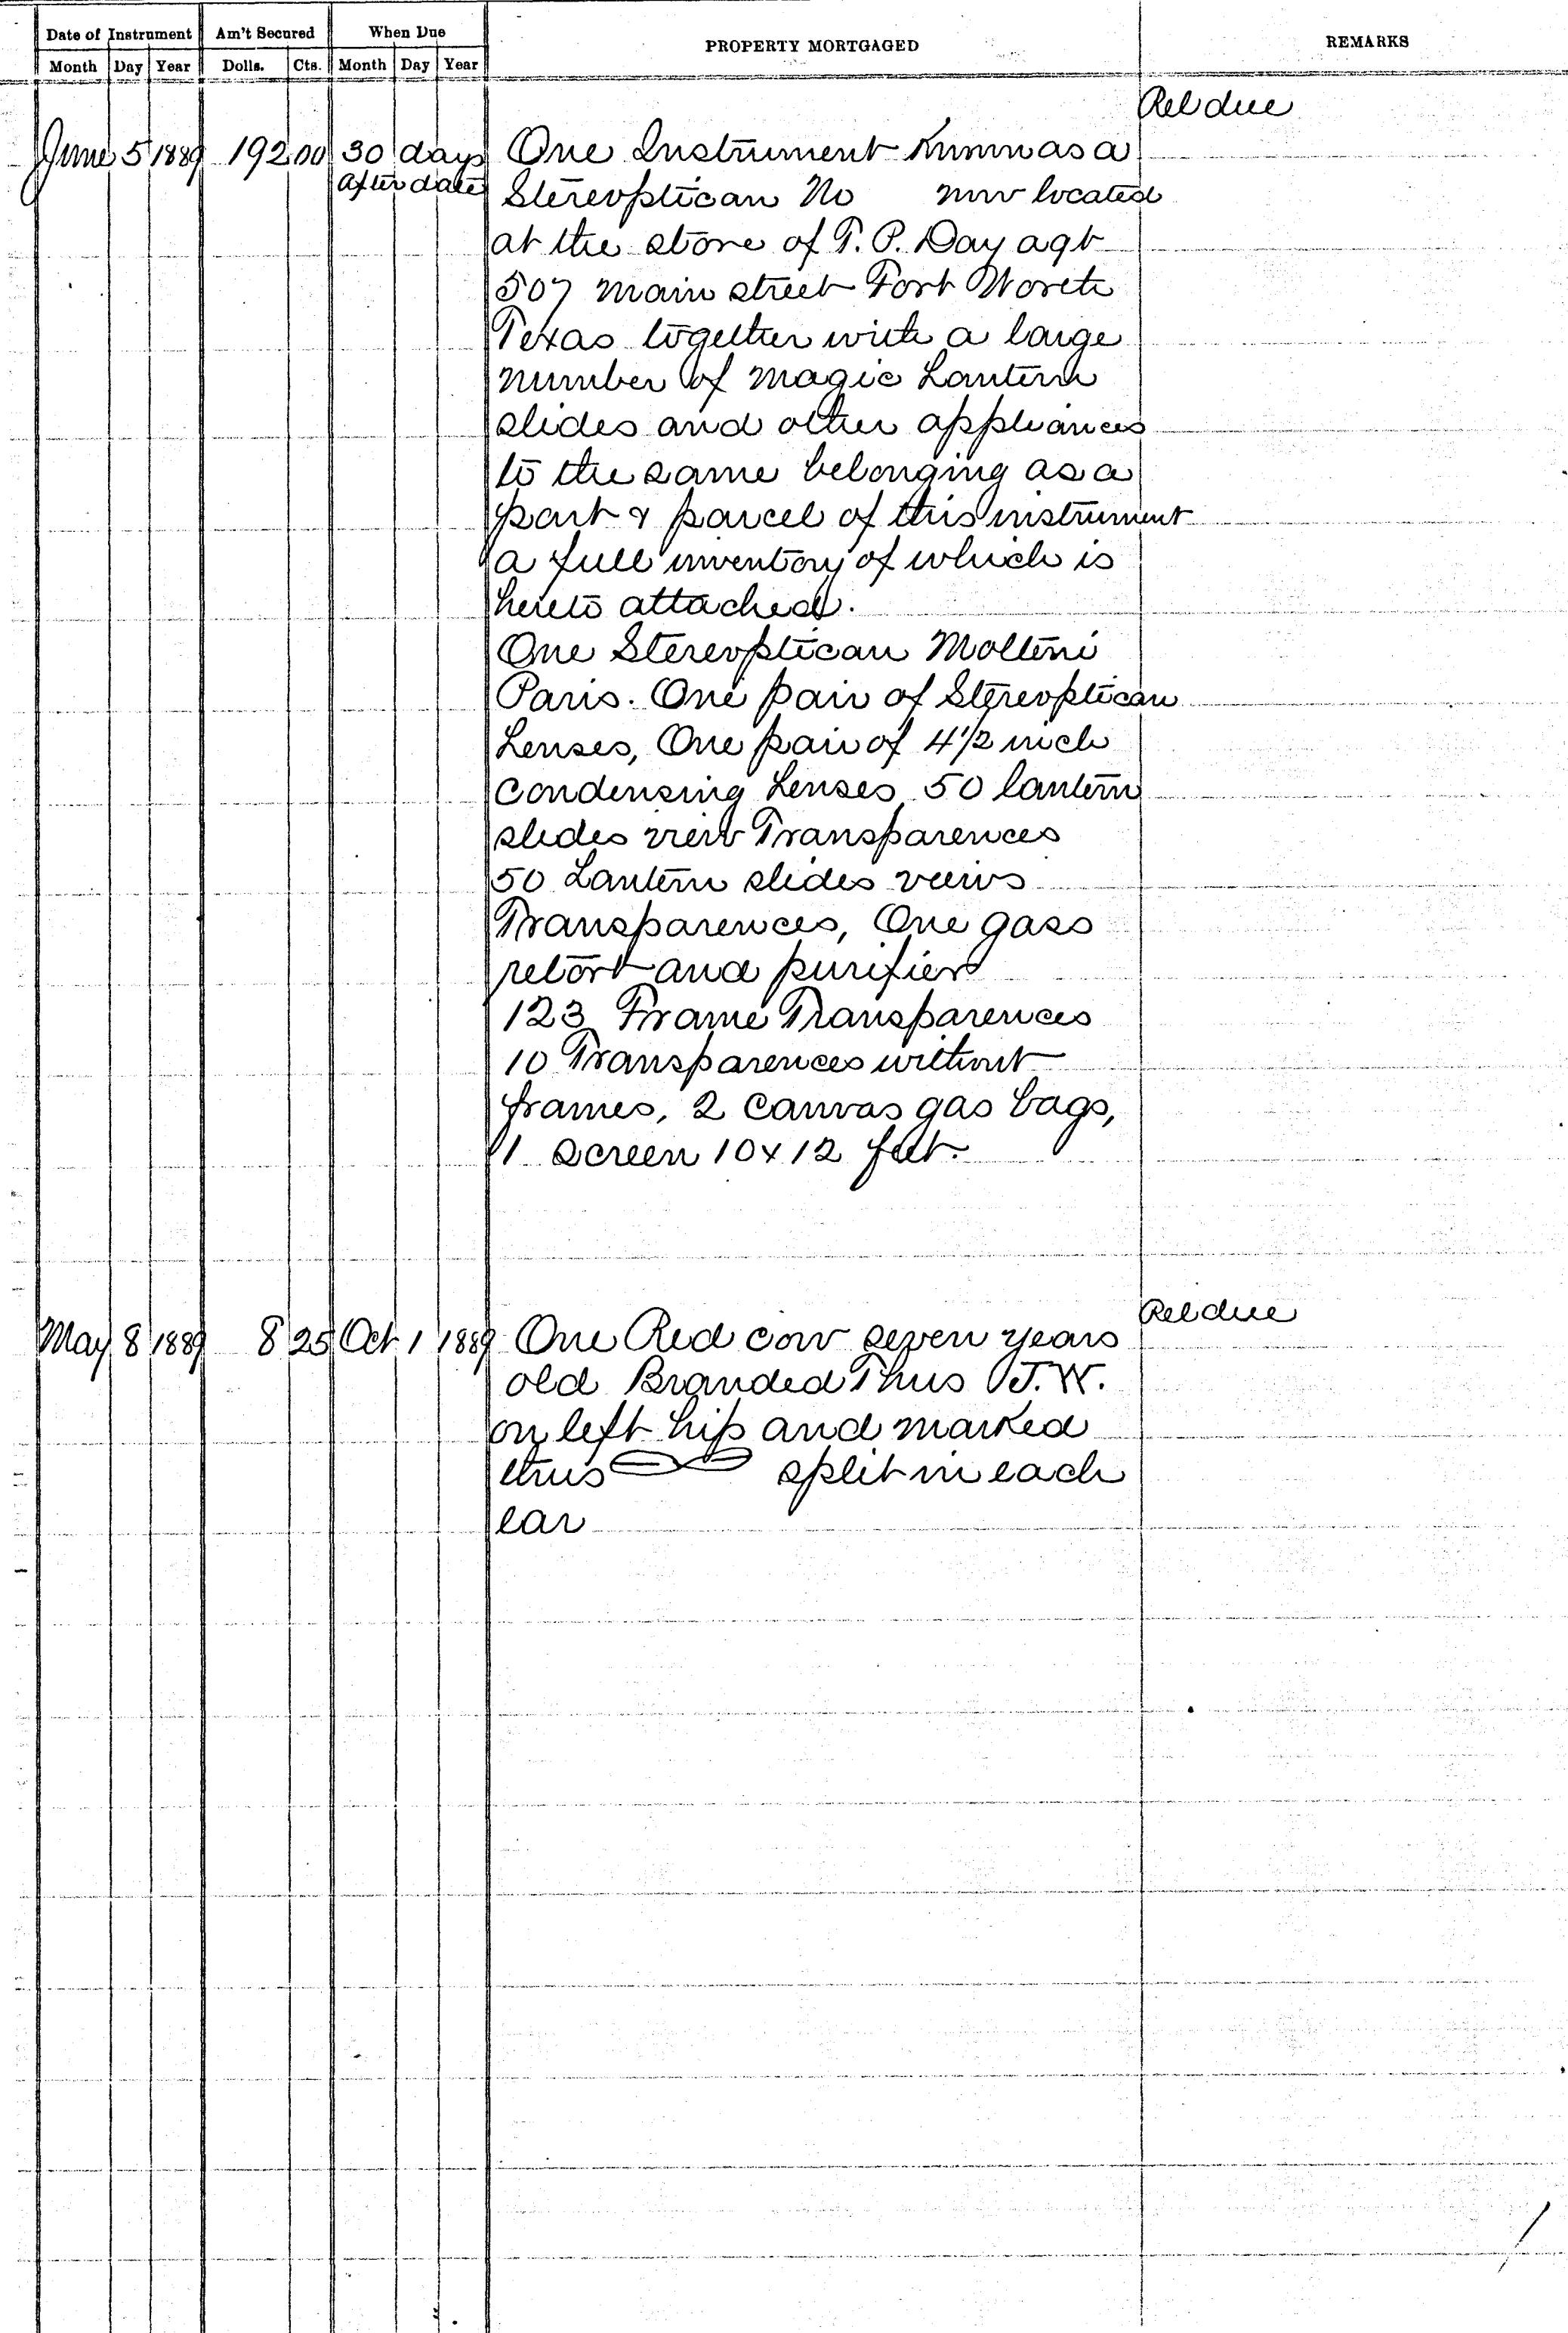 Date of Instrument Am't Secured When Due PROPERTY MORTGAGED REMARKS
Month Day Year Dolls. Cts. Month Day Year
Rel due
June 5 1889 192 00 30 days One Instrument Known as a
After date Stereoptican No now located
at the store of T. P. Day agt
507 Main street Fort Worth
Texas together with a large
number of magic Lantern
slides and other appliances
to the same belonging as a
part & parcel of this instrument
a full inventory of which is
hereto attached.
One Stereoptican Molteni
Paris. One pair of Stereoptican
Lenses, One pair of 4 1/2 inch
Condensing Lenses 50 lantern
slides view Transparences
50 Lantern slides views
Transparences, One gass
retort and purifier
123 Frame Transparences
10 Transparences without
frames, 2 Canvas gas bags,
1 Screen 10 x 12 feet.
Rel due
May 8 1889 8 25 Oct 1 1889 One Red cow seven years
old Branded Thus J. W.
on left hip and marked
thus split in each
ear